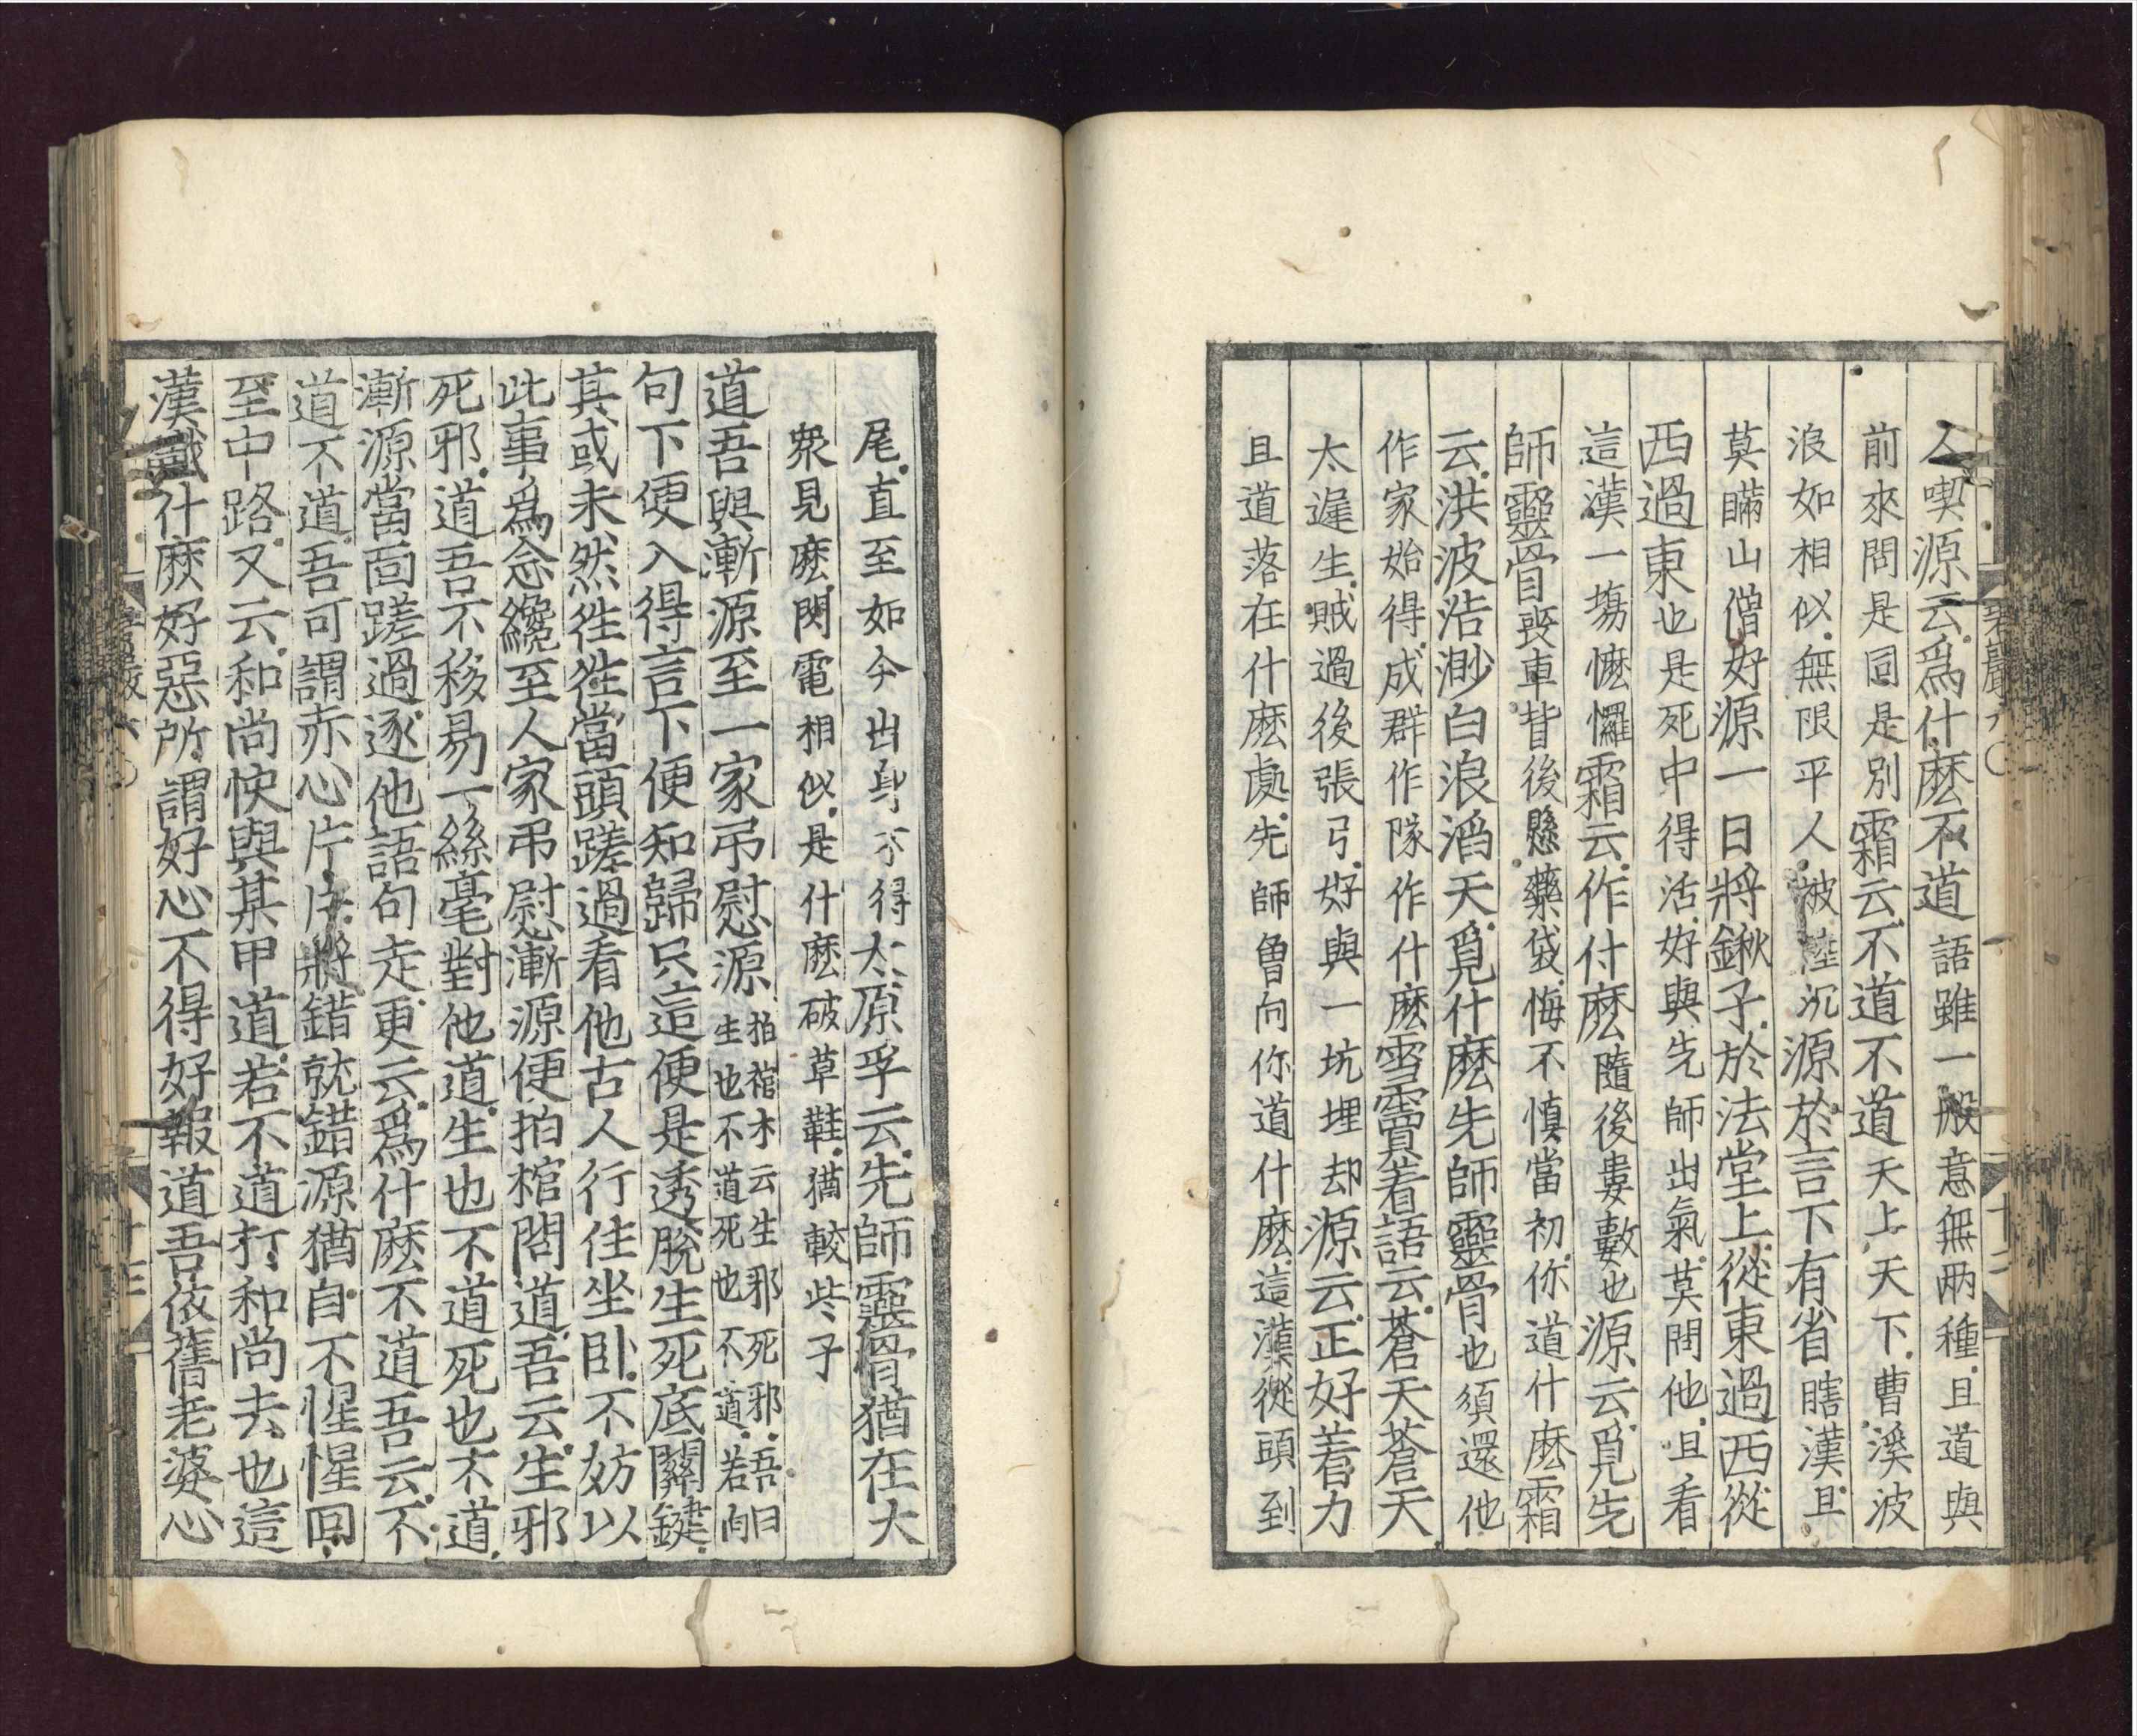 人喫源云爲什麽不道語雖一般意無兩種且道與
前來問是同是別霜云不道不道天上天下曹溪波
浪如相似無限平人被陸沉源於言下有省瞎漢且
莫瞞山僧好源一日將鍬子於法堂上從東過西從
西過東也是死中得活好與先師出氣莫問他且看
這漢一場懡㦬霜云作什麽隨後婁數也源云覓先
師靈骨喪車背後懸藥袋悔不慎當初你道什麽霜
云洪波浩渺白浪滔天覓什麽先師靈骨也須還他
作家始得成群作隊作什麽雪竇着語云蒼天蒼天
太遲生賊過後張弓好與一坑埋却源云正好着力
且道落在什麽處先師曾向你道什麽這漢從頭到
碧巖六〇
十二
尾直至如今出身不得太原孚云先師靈骨猶在大
衆見麽閃電相似是什麽破草鞋猶較些子
道吾與漸源至一家弔慰源拍棺木云生邪死邪吾曰
生也不道死也不道若向
句下便入得言下便知歸只這便是透脫生死底關鍵
其或未然徃徃當頭蹉過看他古人行住坐卧不妨以
此事爲念纔至人家弔慰漸源便拍棺問道吾云生邪
死邪道吾不移易一絲毫對他道生也不道死也不道
漸源當面蹉過逐他語句走更云爲什麽不道吾云不
道不道吾可謂赤心片片將錯就錯源猶自不惺惺回
至中路又云和尚快與某甲道若不道打和尚去也這
漢識什麽好惡所謂好心不得好報道吾依舊老婆心